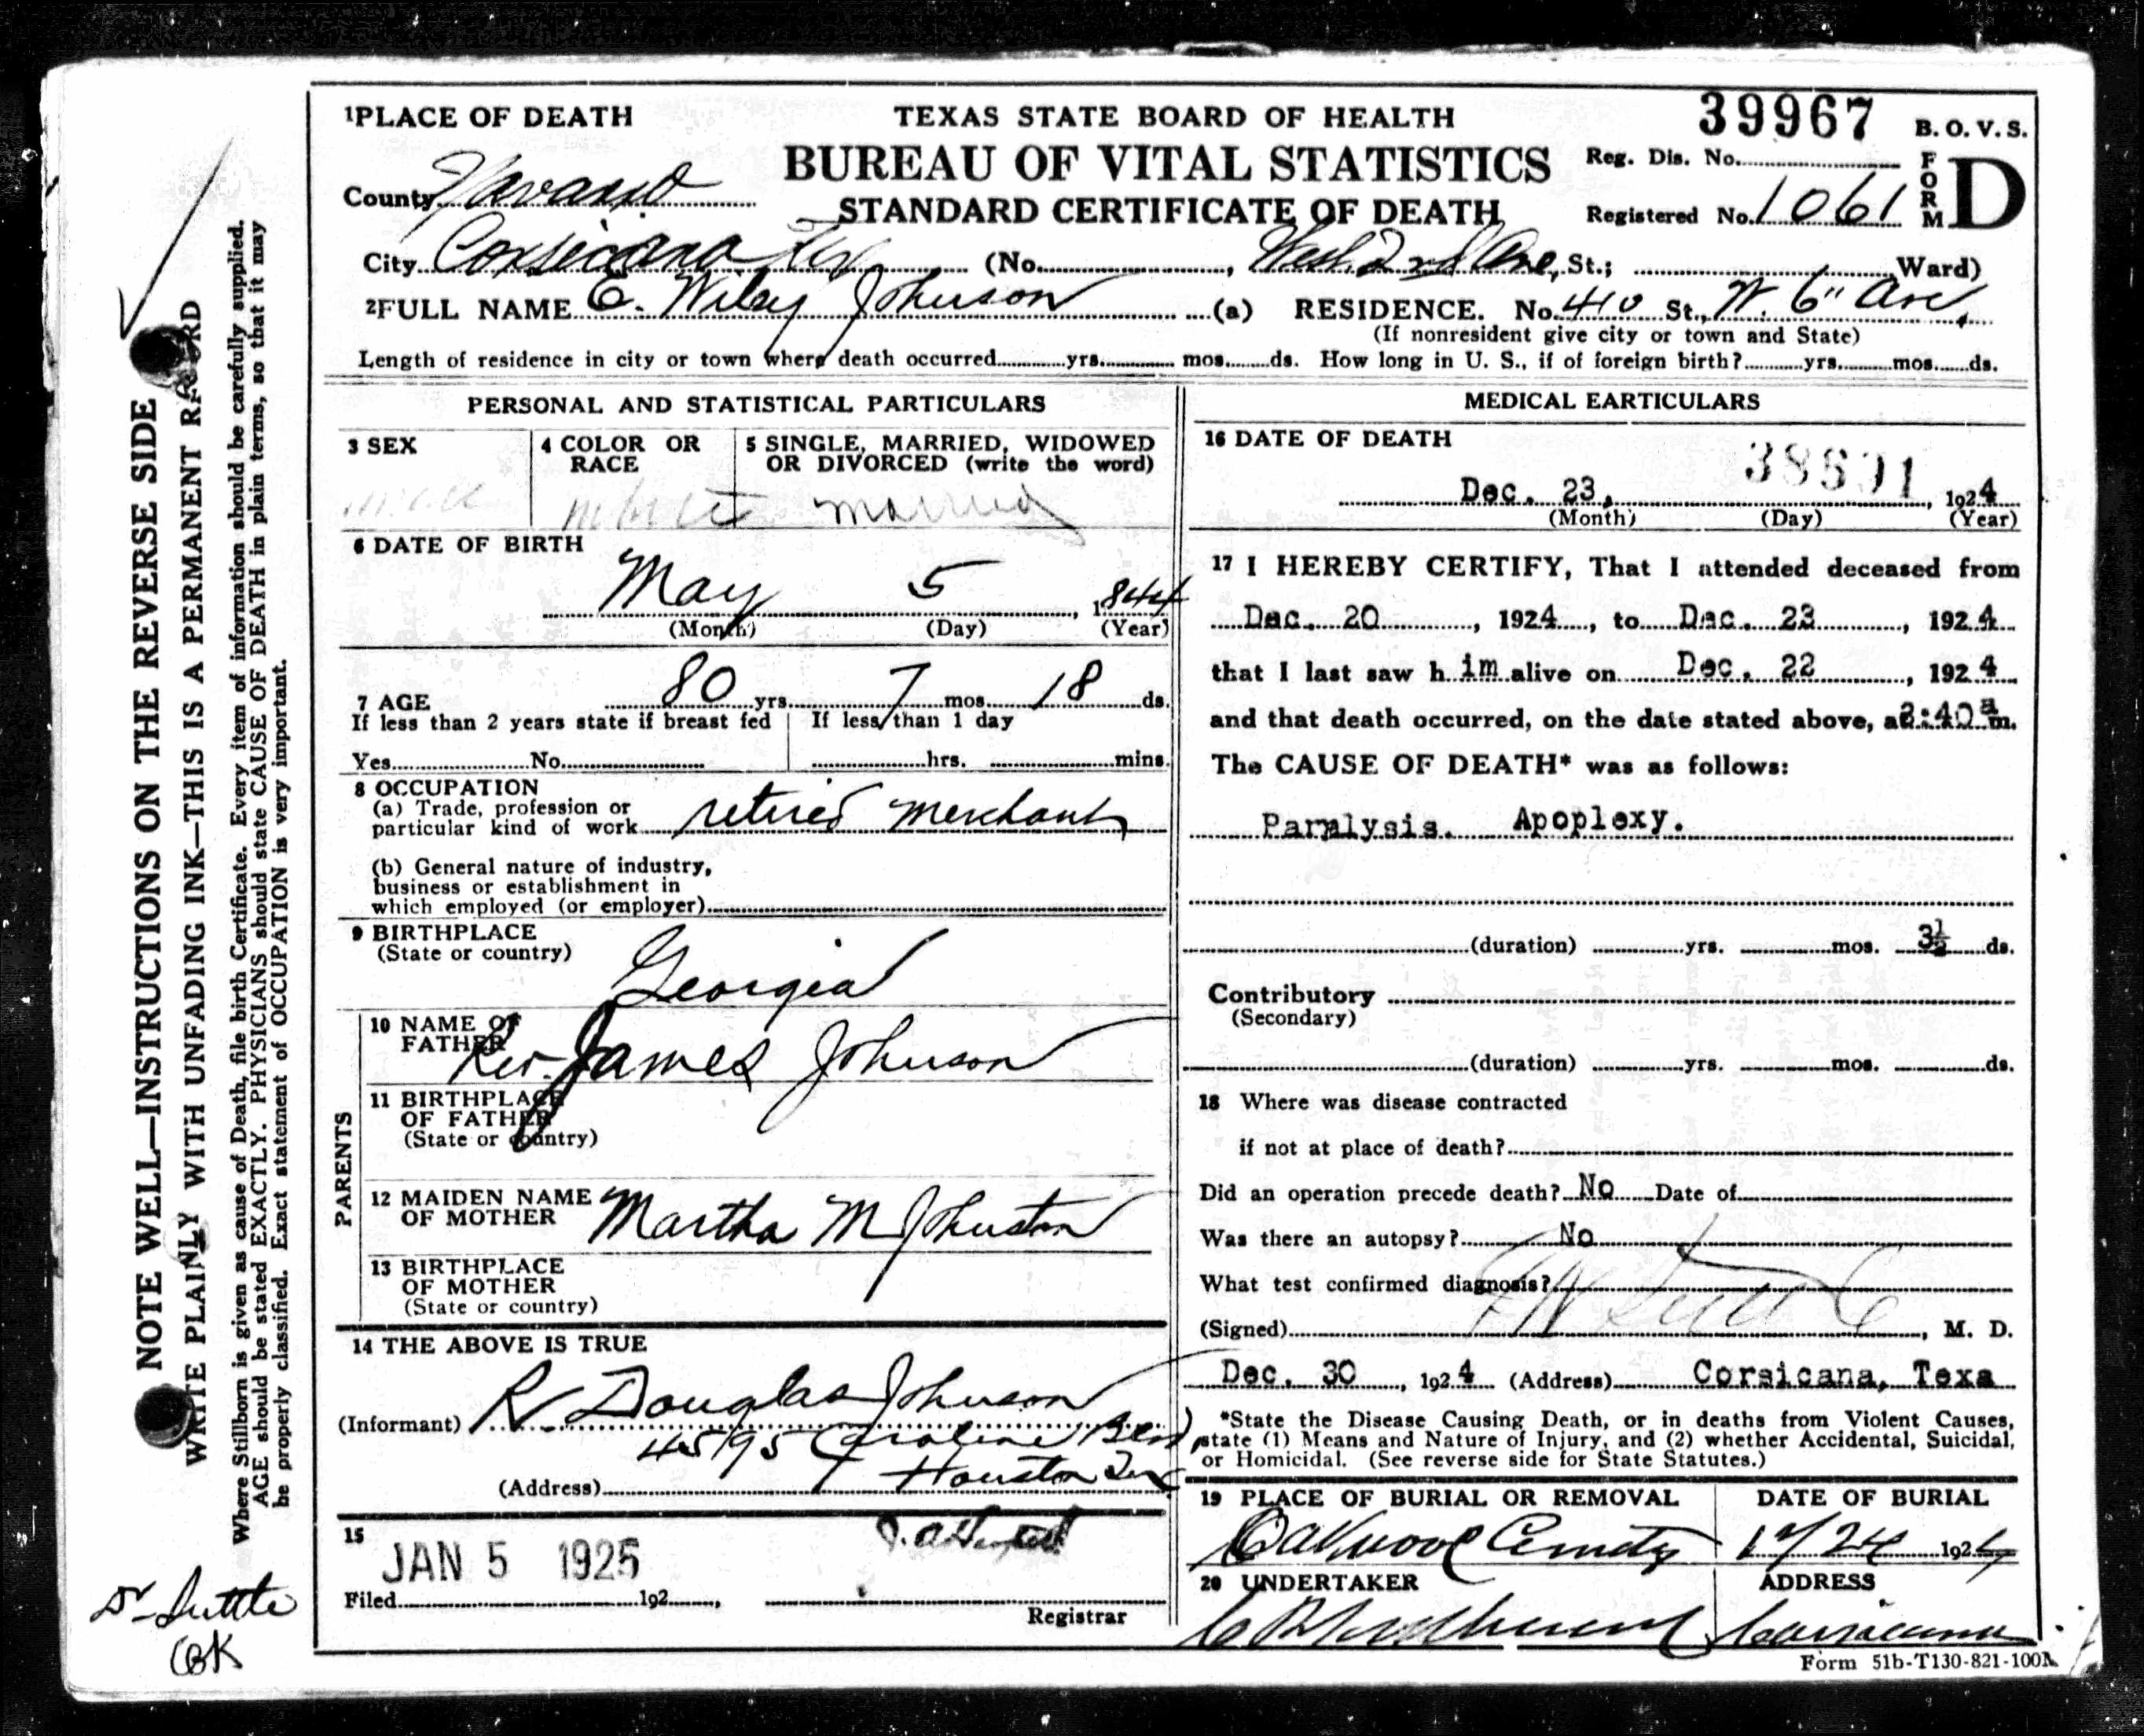 NOTE WELL—INSTRUCTIONS ON THE REVERSE SIDE
WRITE PLAINLY WITH UNFADING INK—THIS IS A PERMANENT RECORD
Where Stillborn is given as cause of Death, file birth Certificate. Every item of information should be carefully supplied.
AGE should be stated EXACTLY. PHYSICIANS should state CAUSE OF DEATH in plain terms, so that it may
be properly classified. Exact statement of OCCUPATION is very important.
Dr Suttle
OK
1 PLACE OF DEATH
TEXAS STATE BOARD OF HEALTH
39967
B. O. V. S.
BUREAU OF VITAL STATISTICS
Reg. Dis. No.
FORM D
County Navarro
STANDARD CERTIFICATE OF DEATH
Registered No. 1061
City Corsicana Tex (No. , West 2nd Ave, St.; Ward)
2 FULL NAME E. Wiley Johnson (a) RESIDENCE. No. 410 St., W. 6" Ave,
(If nonresident give city or town and State)
Length of residence in city or town where death occurred yrs. mos. ds. How long in U. S., if of foreign birth? yrs. mos. ds.
PERSONAL AND STATISTICAL PARTICULARS
3 SEX
4 COLOR OR RACE
5 SINGLE, MARRIED, WIDOWED
OR DIVORCED (write the word)
male white married
6 DATE OF BIRTH
May 5, 1844
(Month) (Day) (Year)
7 AGE 80 yrs. 7 mos. 18 ds.
If less than 2 years state if breast fed If less than 1 day
Yes No hrs. mins.
8 OCCUPATION
(a) Trade, profession or
particular kind of work retired merchant
(b) General nature of industry,
business or establishment in
which employed (or employer)
9 BIRTHPLACE
(State or country)
Georgia
PARENTS
10 NAME OF
FATHER
Rev. James Johnson
11 BIRTHPLACE
OF FATHER
(State or country)
12 MAIDEN NAME
OF MOTHER
Martha M Johnston
13 BIRTHPLACE
OF MOTHER
(State or country)
14 THE ABOVE IS TRUE
(Informant) R Douglas Johnson
Caroline
(Address) Houston Tex
15
JAN 5 1925
Filed 192 ,
Registrar
MEDICAL EARTICULARS
16 DATE OF DEATH
Dec. 23, , 1924
(Month) (Day) (Year)
17 I HEREBY CERTIFY, That I attended deceased from
Dec. 20 , 1924 , to Dec. 23 , 1924
that I last saw h im alive on Dec. 22 , 1924
and that death occurred, on the date stated above, at :40 a m.
The CAUSE OF DEATH* was as follows:
Paralysis. Apoplexy.
(duration) yrs. mos. 3½ ds.
Contributory
(Secondary)
(duration) yrs. mos. ds.
18 Where was disease contracted
if not at place of death?
Did an operation precede death? No Date of
Was there an autopsy? No
What test confirmed diagnosis?
(Signed) , M. D.
Dec. 30 , 1924 (Address) Corsicana, Texa
*State the Disease Causing Death, or in deaths from Violent Causes,
state (1) Means and Nature of Injury, and (2) whether Accidental, Suicidal,
or Homicidal. (See reverse side for State Statutes.)
19 PLACE OF BURIAL OR REMOVAL
DATE OF BURIAL
Oakwood Cemetery
12/24 1924
20 UNDERTAKER
ADDRESS
Corsicana
Form 51b-T130-821-100M